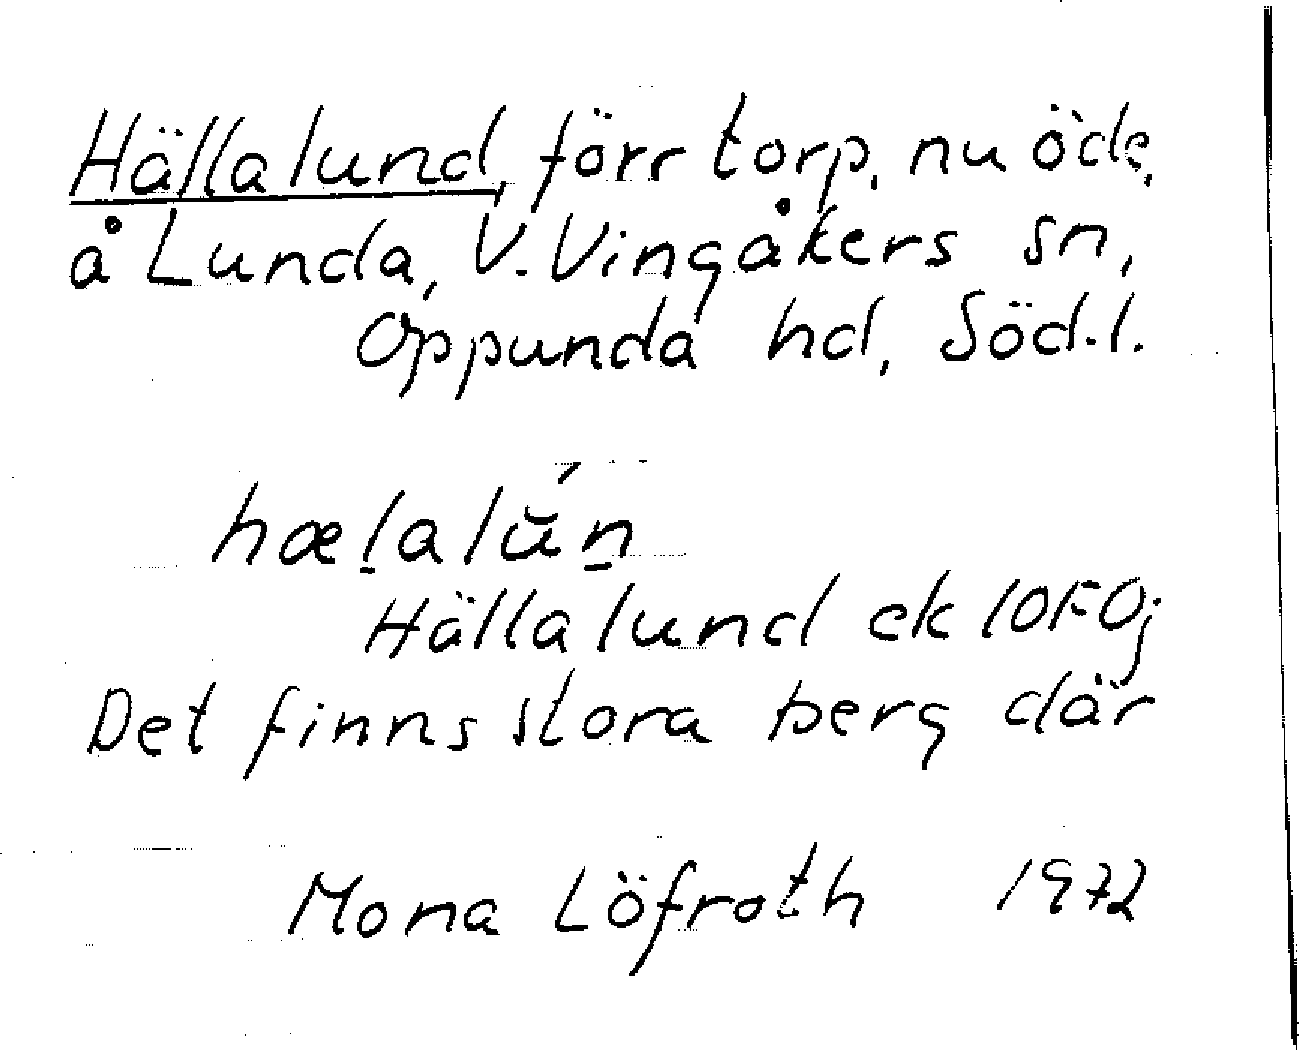 Hällalund, förr torp, nu öde,
å Lunda, V. Vingåkers sn,
Oppunda hd, Söd.l.
hæl̠alŭ́n̠
Hällalund ek 10F0j
Det finns stora berg där
Mona Löfroth 1972